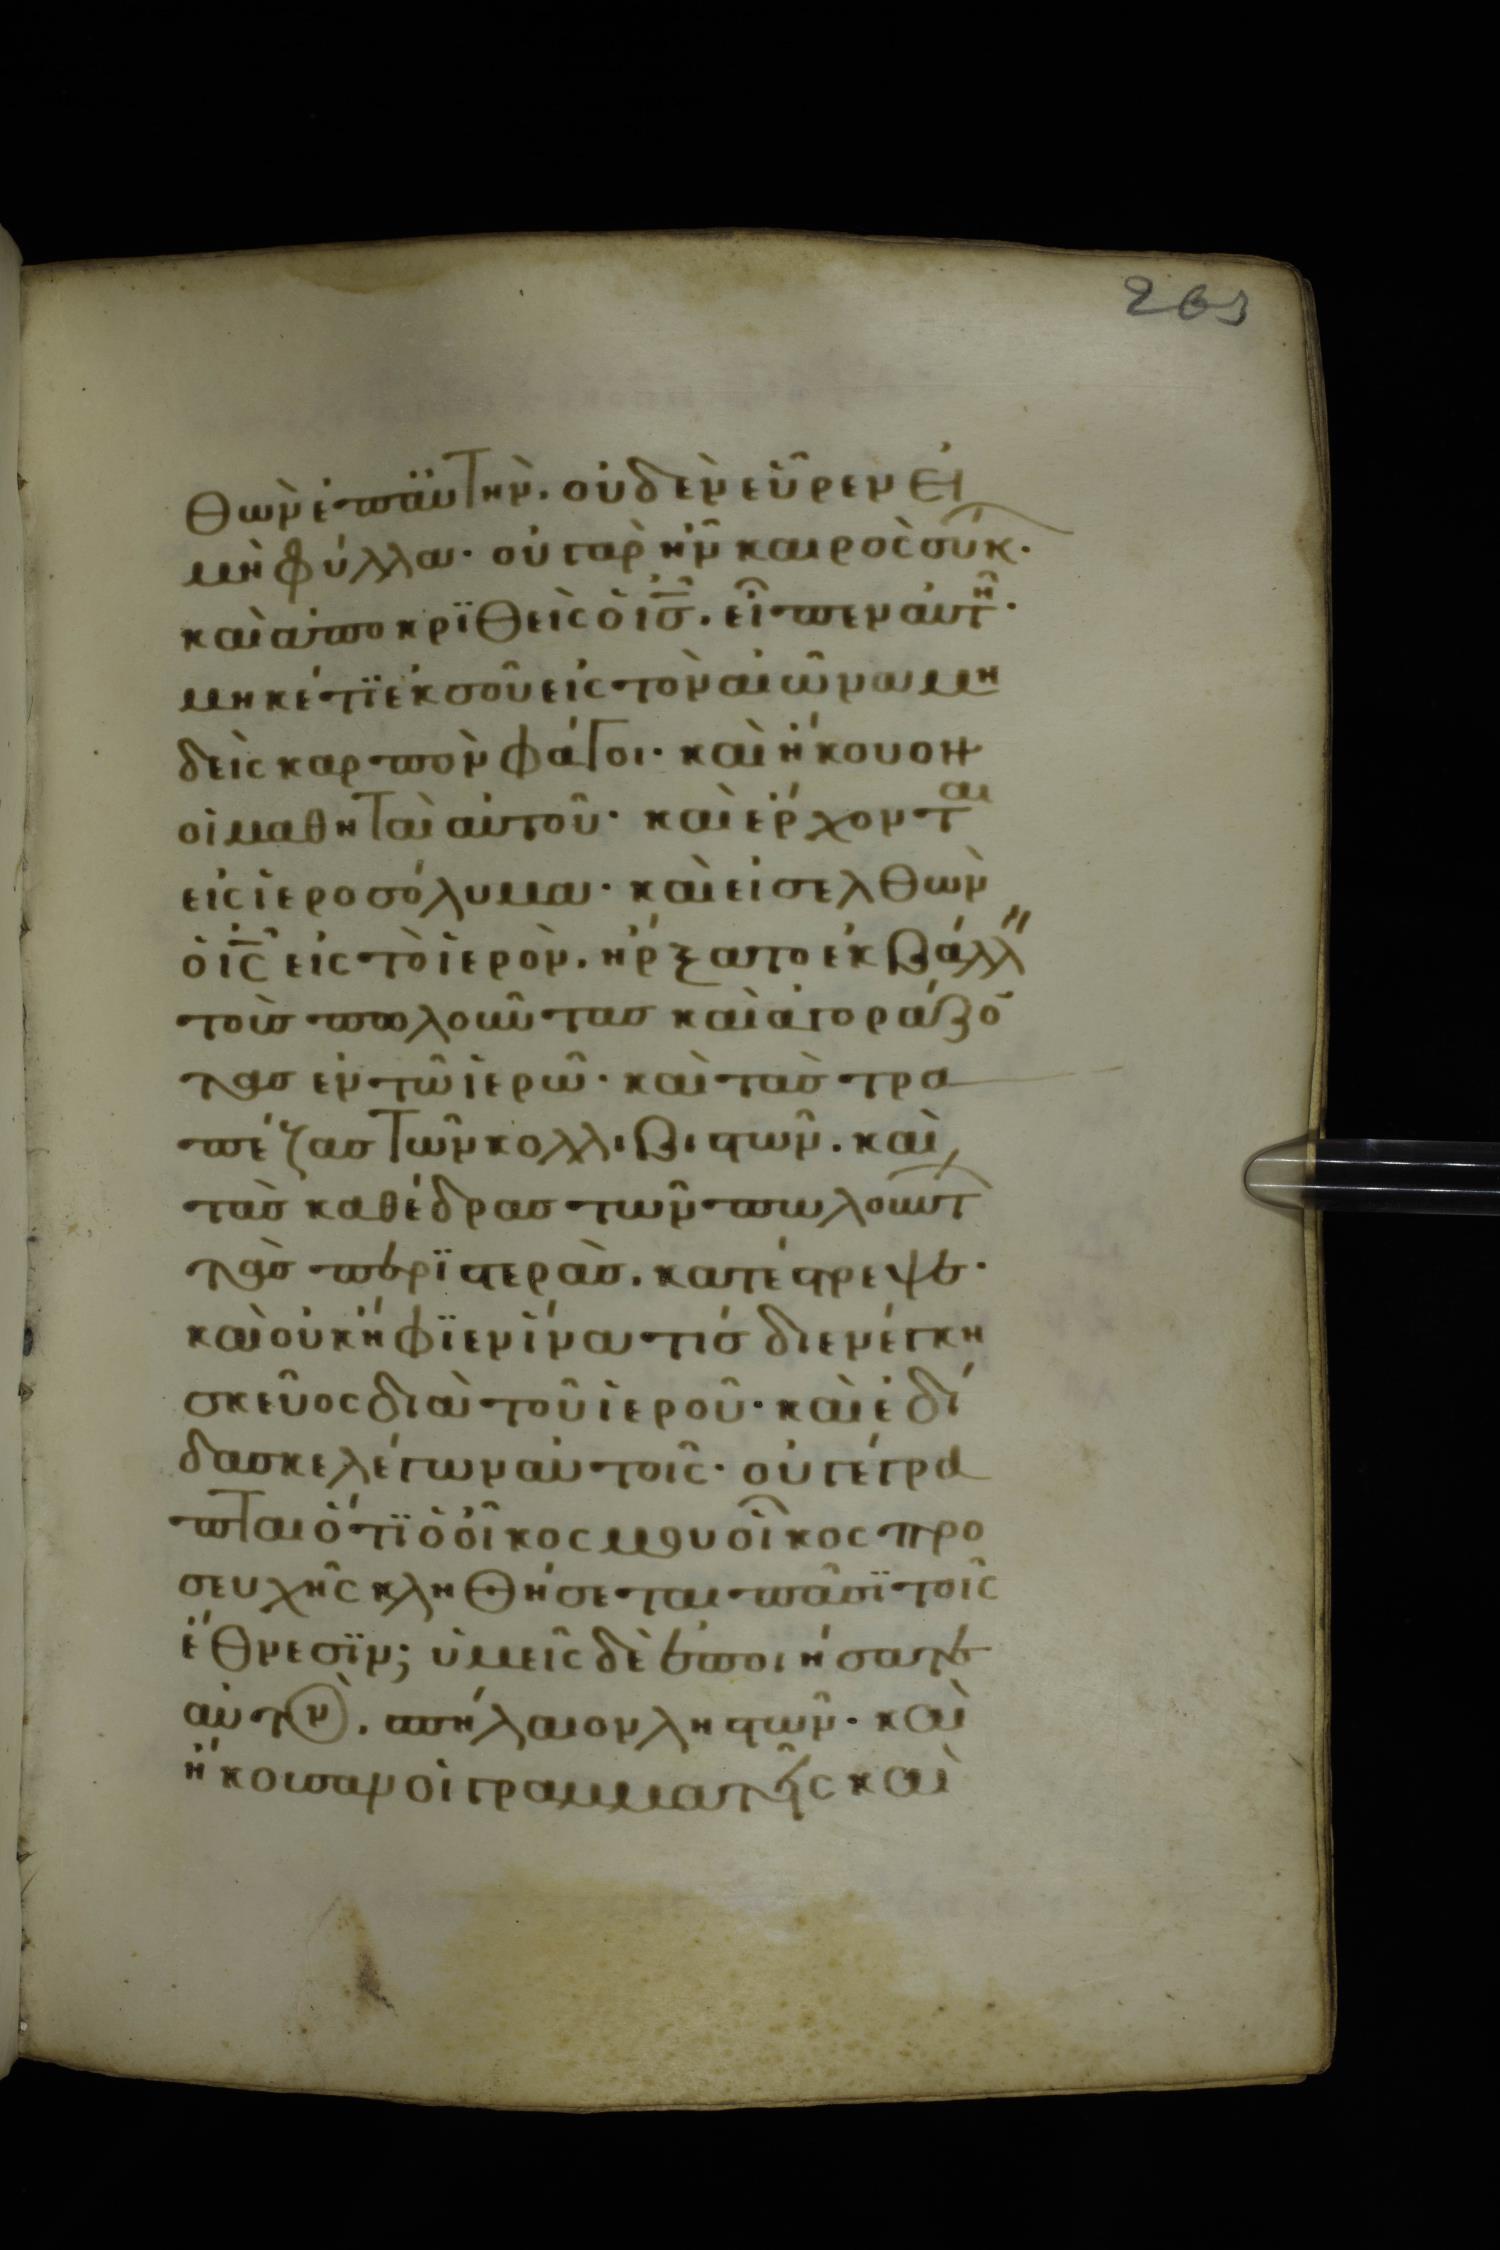 263
θὼν ἐπ αὐτὴν. οὐδὲν εὗρεν εἰ
μὴ φύλλα· οὐ γαρ ἦν καιρὸς σύκ·
καὶ ἀποκρϊθεὶς ὁ ισ̅. εἶπεν αὐτῆ·
μηκέτϊ ἐκ σοῦ εἰς τὸν αἰῶνα μη
δεὶς καρπὸν φάγοι· καὶ ἤκουον
οἱ μαθηταὶ αὐτοῦ· καὶ ἔρχονται
εἰς ἱεροσόλυμα· καὶ εἰσελθὼν
ὁ ις̅ εἰς τὸ ἱερὸν. ἤρξατο ἐκβάλλ
τοὺσ πωλοῦντασ καὶ ἀγοράζο
τασ ἐν τῶ ἱερῶ· καὶ τασ τρα
πέζασ τῶν κολλιβιστῶν. καὶ
τὰσ καθέδρασ τῶν πωλούντ
τὰσ περϊστερὰσ. κατέστρεψε·
καὶ οὐκ ἤφϊεν ἵνα τίσ διενέγκη
σκεῦος διὰ τοῦ ἱεροῦ· καὶ ἐδί
δασκε λέγων αὐτοῖς· οὐ γέγρα
πται ὅτϊ ὁ οἶκος μου οἶκος προ
σευχῆς κληθήσεται πᾶσϊ τοῖς
ἔθνεσϊν; ὑμεῖς δὲ ἐποιήσατε
αὐτὸν. σπήλαιον ληστῶν· καὶ
ἤκουσαν οἱ γραμματῆς καὶ